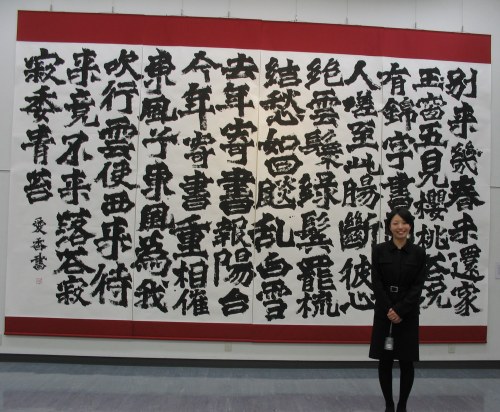 別来幾春未還家
玉窗五見櫻桃花況
有錦字書
人嗟至此腸断彼心
絶雲鬟緑鬢罷梳
結愁如回飈乱白雪
去年寄書報陽台
今年寄書重相催
東風乎東風為我
吹行雲使西来待
来竟不来落花寂
寂委青苔
書